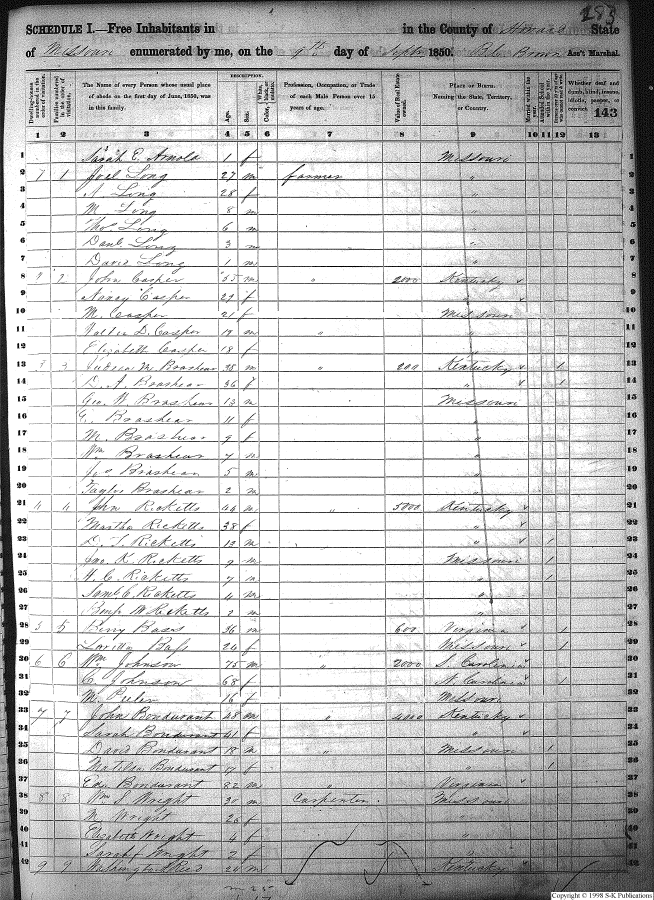 283
SCHEDULE I.—Free Inhabitants in in the County of Howard State
of Missouri enumerated by me, on the 9th day of Septr 1850. Brown Ass't Marshal.
Dwelling-houses numbered in the order of visitation.
Families numbered in the order of visitation.
The Name of every Person whose usual place of abode on the first day of June, 1850, was in this family.
DESCRIPTION.
Age.
Sex.
Color,
Profession, Occupation, or Trade of each Male Person over 15 years of age.
Value of Real Estate owned.
PLACE OF BIRTH. Naming the State, Territory, or Country.
Married within the year.
Attended School within the year.
Whether deaf and dumb, blind, insane, idiotic, pauper, or convict.
143
1 2 3 4 5 6 7 8 9 10 11 12 13
1 Sarah E. Arnold 1 f Missouri 1
2 1 1 Joel Long 27 m farmer " 2
3 Long 28 f " 3
4 M Long 8 m " 4
5 Thos Long 6 m " 5
6 Danl. Long 3 m " 6
7 David Long 1 m " 7
8 2 2 John Casper 55 m " 2000 Kentucky 8
9 Nancy Casper f " 9
10 M. Casper 21 f Missouri 10
11 D. Casper 19 m " " 11
12 Elizabeth Casper 18 f " 12
13 3 3 M. Brashear 38 m " 200 Kentucky 1 13
14 D. A. Brashear 36 f " 1 14
15 Geo. W. Brashear 13 m Missouri 15
16 Brashear 11 f " 16
17 M. Brashear 9 f " 17
18 Wm. Brashear 7 m " 18
19 Jas Brashear 5 m " 19
20 Taylor Brashear 2 m " 20
21 4 4 John Ricketts 44 m " 5000 Kentucky 21
22 Martha Ricketts 38 f " 22
23 Ricketts 13 m " 1 23
24 Jno. K. Ricketts 9 m Missouri 1 24
25 C. Ricketts 7 m " 1 25
26 Saml C. Ricketts 4 m " 26
27 Benj. W Ricketts 2 m " 27
28 5 5 Berry Bass 36 m 600 Virginia 1 28
29 Bass 26 f Missouri 1 29
30 6 6 Wm. Johnson 75 m " 2000 S. Carolina 30
31 C. Johnson 68 f N. Carolina 1 31
32 M. 16 f Missouri 32
33 7 7 John Bondurant 48 m " 4000 Kentucky 33
34 Sarah Bondurant 41 f " 34
35 David Bondurant 18 m " Missouri 1 35
36 Matilda Bondurant f " 1 36
37 Bondurant 82 m " Virginia 37
38 8 8 Wm. S. Wright 30 m Carpenter Missouri 38
39 M. Wright 26 f " 39
40 Elizabeth Wright 4 f " 40
41 Sarah J Wright 2 f " 41
42 9 9 Washington Reed m Kentucky 42
m 25
17
Copyright © 1998 S-K Publications